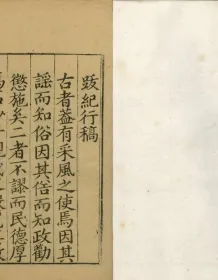 跋紀行稿
古者葢有采風之使焉因其
謡而知俗因其俗而知政勸
懲施矣二者不謬而民德厚